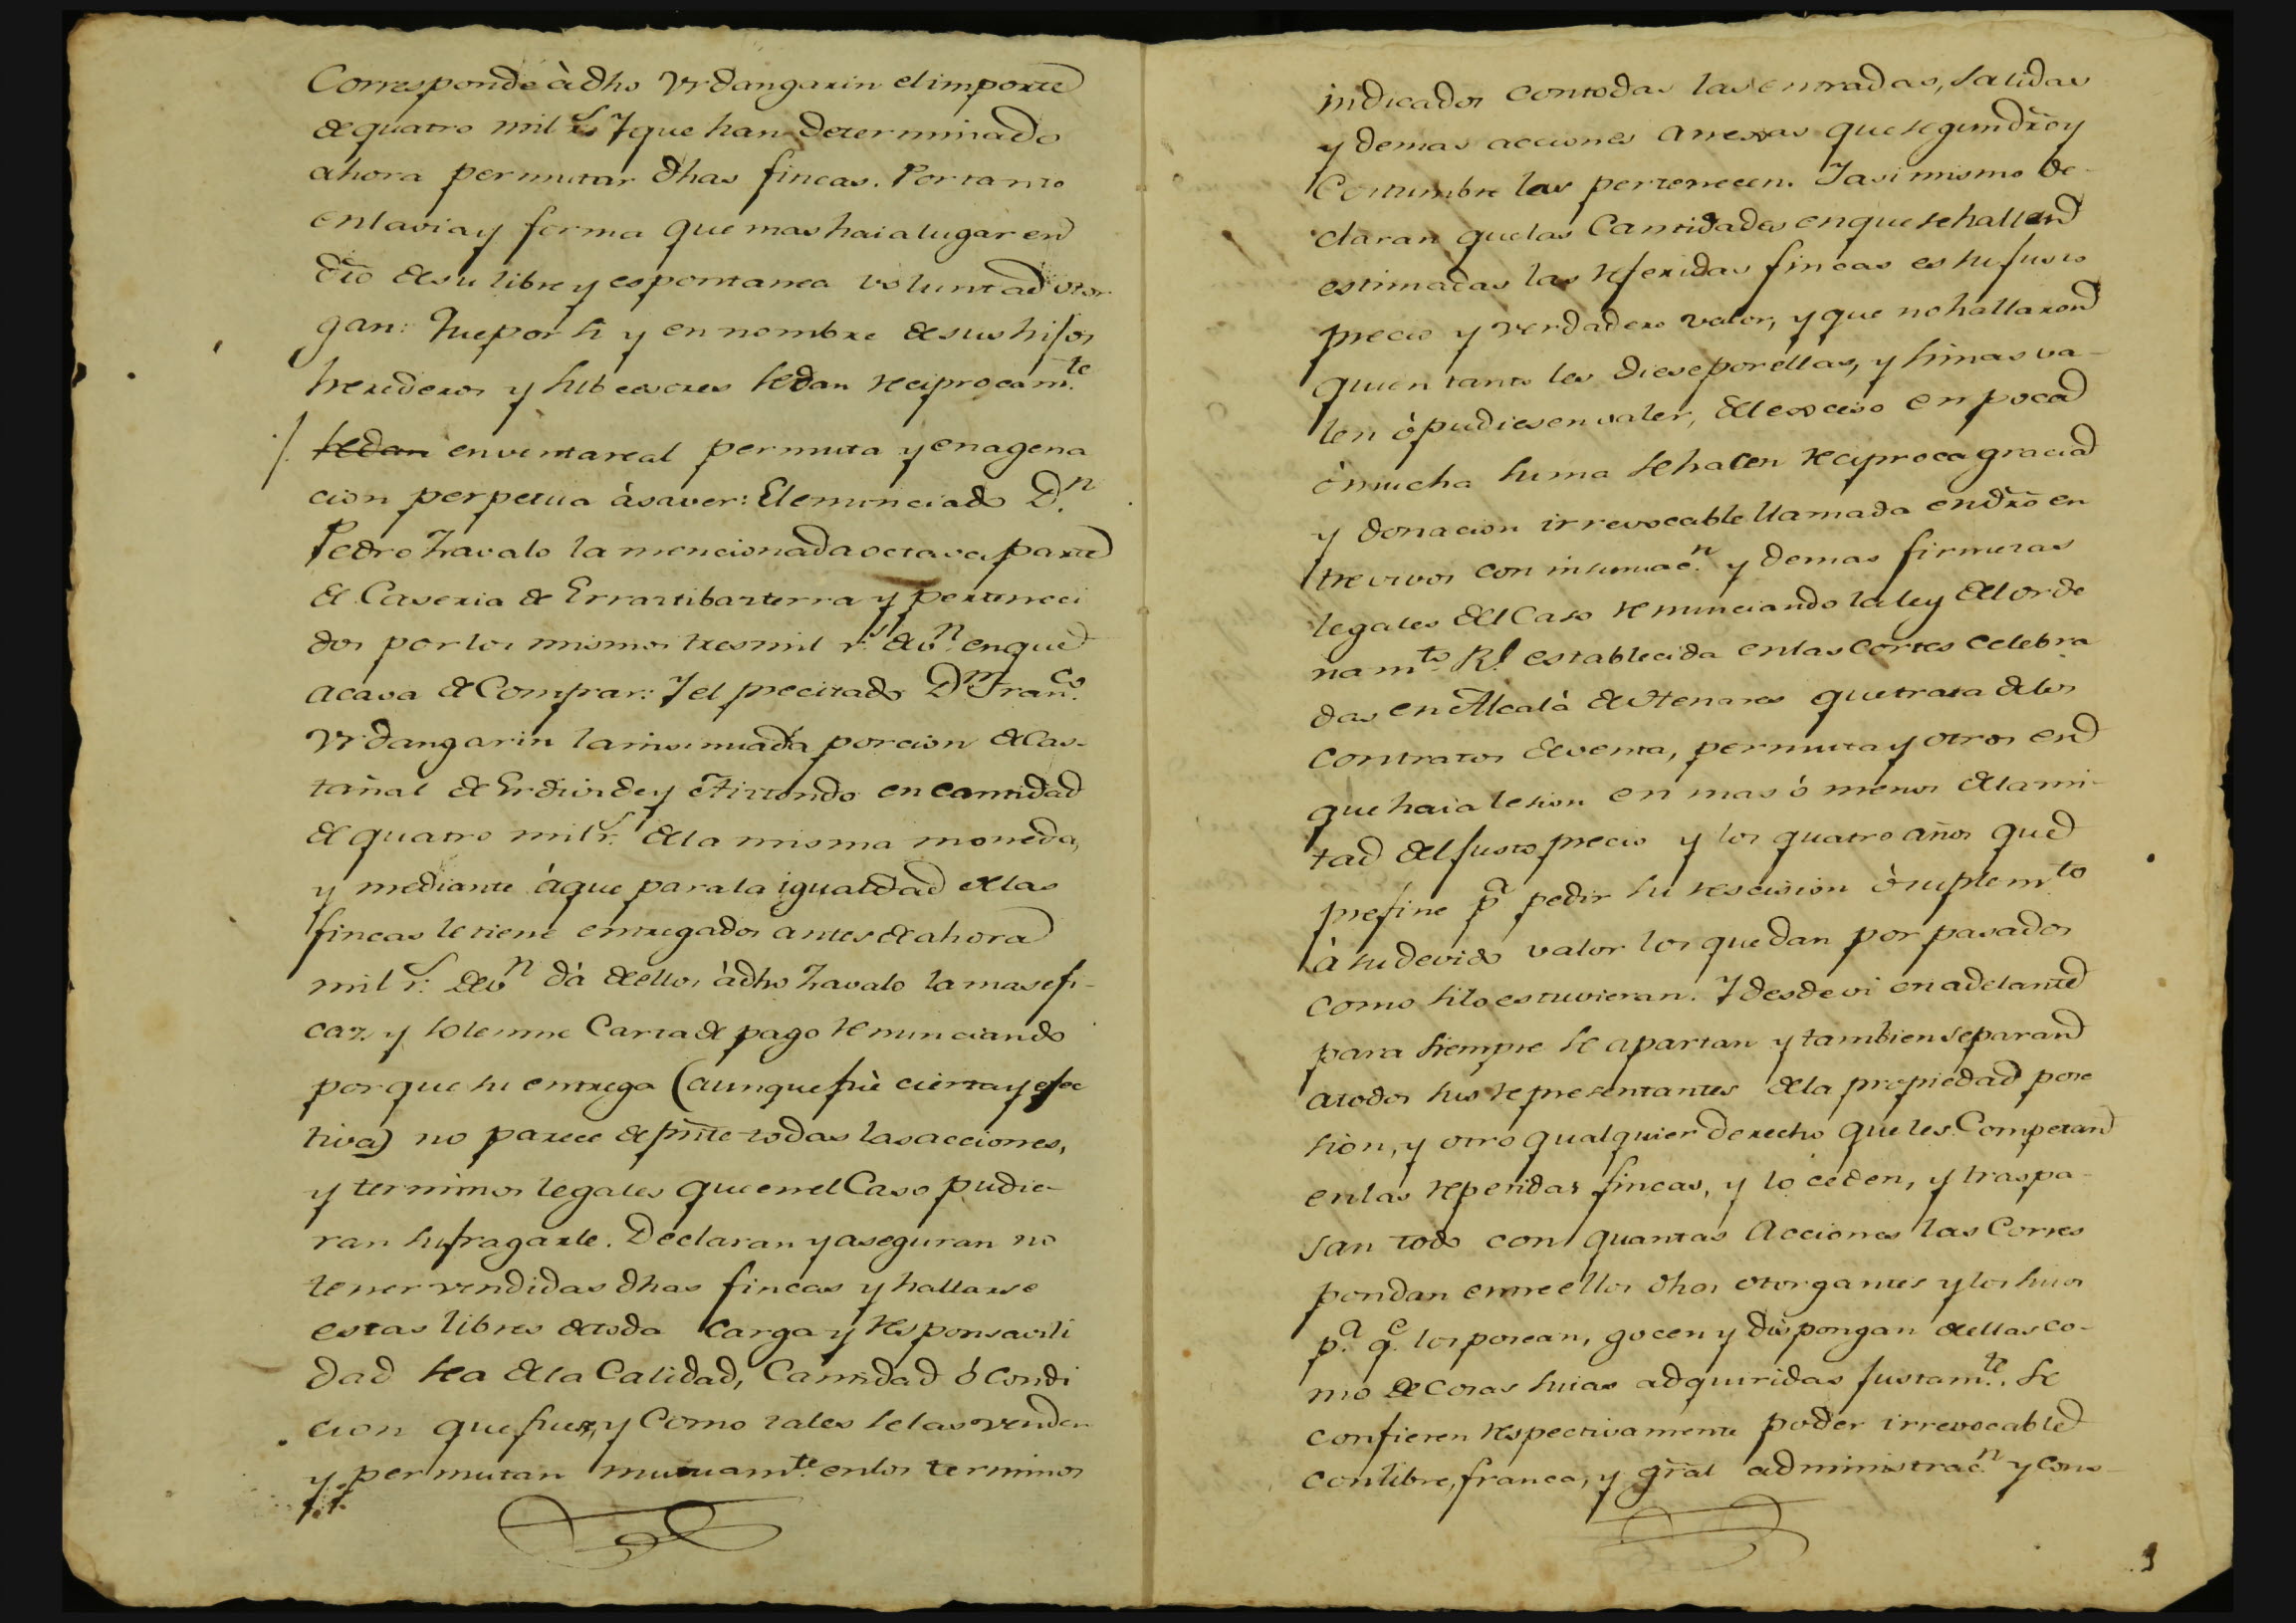 Corresponde à dho Urdangarin el importe
de quatro mil r.s Y que han determinado
ahora permutar dhas fincas. Por tanto
en la via y forma que mas haia lugar en
dr̃o de su libre y espontanea voluntad otor
gan: Que por si y en nombre de sus hijos
herederos y subcesores se dan reciprocam.te
se dan en venta real permuta y enagena
cion perpetua à saver: El enunciado D.n
Pedro Zavalo la mencionada octava parte
de Caseria de Errartibarterra y perteneci
dos por los mismos tres mil r.s de v.n en que
acava de Comprar: Y el precitado D.n Fran.co
Urdangarin la insinuada porcion de Cas-
tañal de Erdivide y Airtondo en cantidad
de quatro mil r.s de la misma moneda,
y mediante à que para la igualdad de las
fincas le tiene entregados antes de ahora
mil r.s de v.n dà de ellos à dho Zavalo la mas efi-
caz y solemne Carta de pago renunciando
por que su entrega (aunque fuè cierta y efec
tiva) no parece de pñte todas las acciones,
y terminos legales que en el Caso pudie-
ran sufragarle. Declaran y aseguran no
tener vendidas dhas fincas y hallarse
estas libres de toda Carga y responsavili
dad sea de la Calidad, Cantidad ó Condi
cion que fuere, y Como tales se las venden
y permutan mutuam.te en los terminos
indicados con todas las entradas, salidas
y demas acciones anexas que segun dr̃o y
Costumbre les pertenecen. Y asi mismo de-
claran que las Cantidades en que se hallan
estimadas las referidas fincas es su justo
precio y verdadero valor, y que no hallaron
quien tanto les diese por ellas, y si mas va-
len ò pudiesen valer, del exceso en poca
ò mucha suma se hacen reciproca gracia
y donacion irrevocable llamada en dr̃o en
tre vivos con insinuac.n y demas firmezas
legales del Caso renunciando la ley del orde
nam.to R.l establecida en las Cortes celebra
das en Alcalà de Henares que trata de los
contratos de venta, permuta y otros en
que haia lesion en mas ó menos de la mi-
tad del justo precio y los quatro años que
prefine p.a pedir su rescision ò suplem.to
à su devido valor los que dan por pasados
como si lo estuvieran. Y desde oi en adelante
para siempre se apartan y tambien separan
a todos sus representantes de la propiedad pose
sion, y otro qualquier derecho que les Competan
en las repetidas fincas, y lo ceden, y traspa-
san todo con quantas Acciones las Corres
pondan entre ellos dhos otorgantes y los suios
p.a q.e los posean, gocen y dispongan de ellas co-
mo de Cosas suias adquiridas justam.te. Se
confieren respectivamente poder irrevocable
con libre, franca, y gr̃al administrac.n y cons-